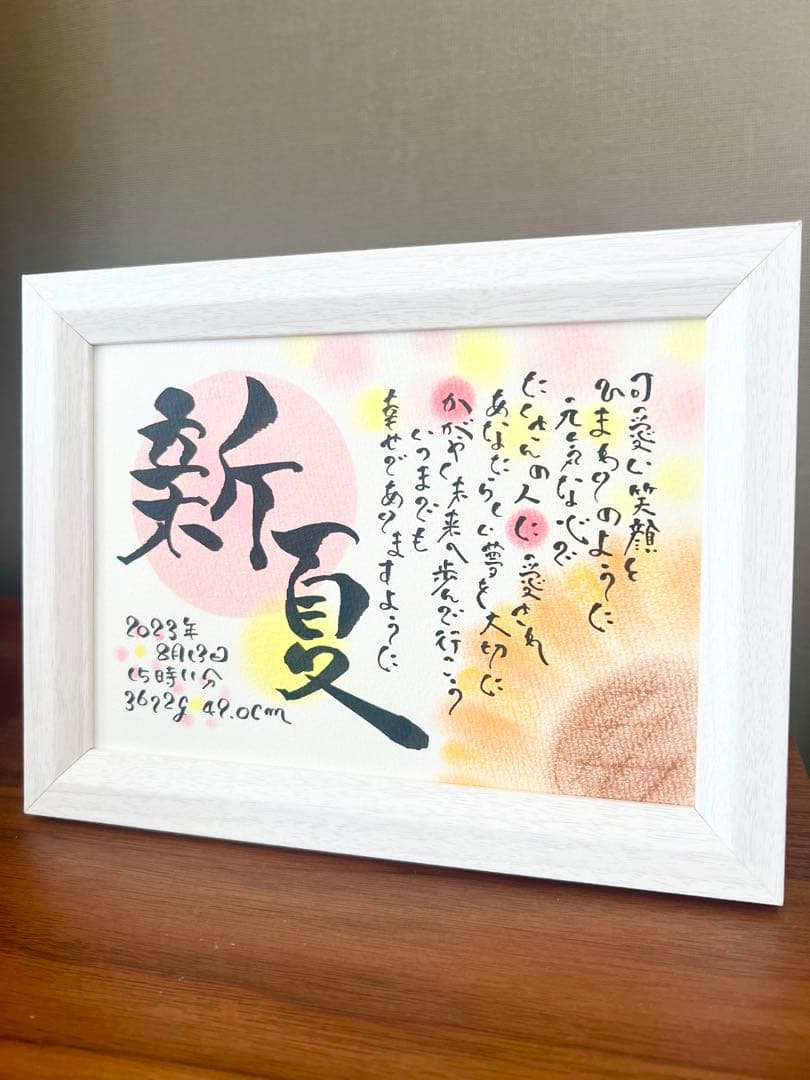 可愛い笑顔と
ひまわりのように
元気な心で
たくさんの人に愛され
あなたらしい夢を大切に
かがやく未来へ歩んで行こう
いつまでも
幸せでありますように
新夏
2023年
8月13日
15時11分
3672g 49.0cm